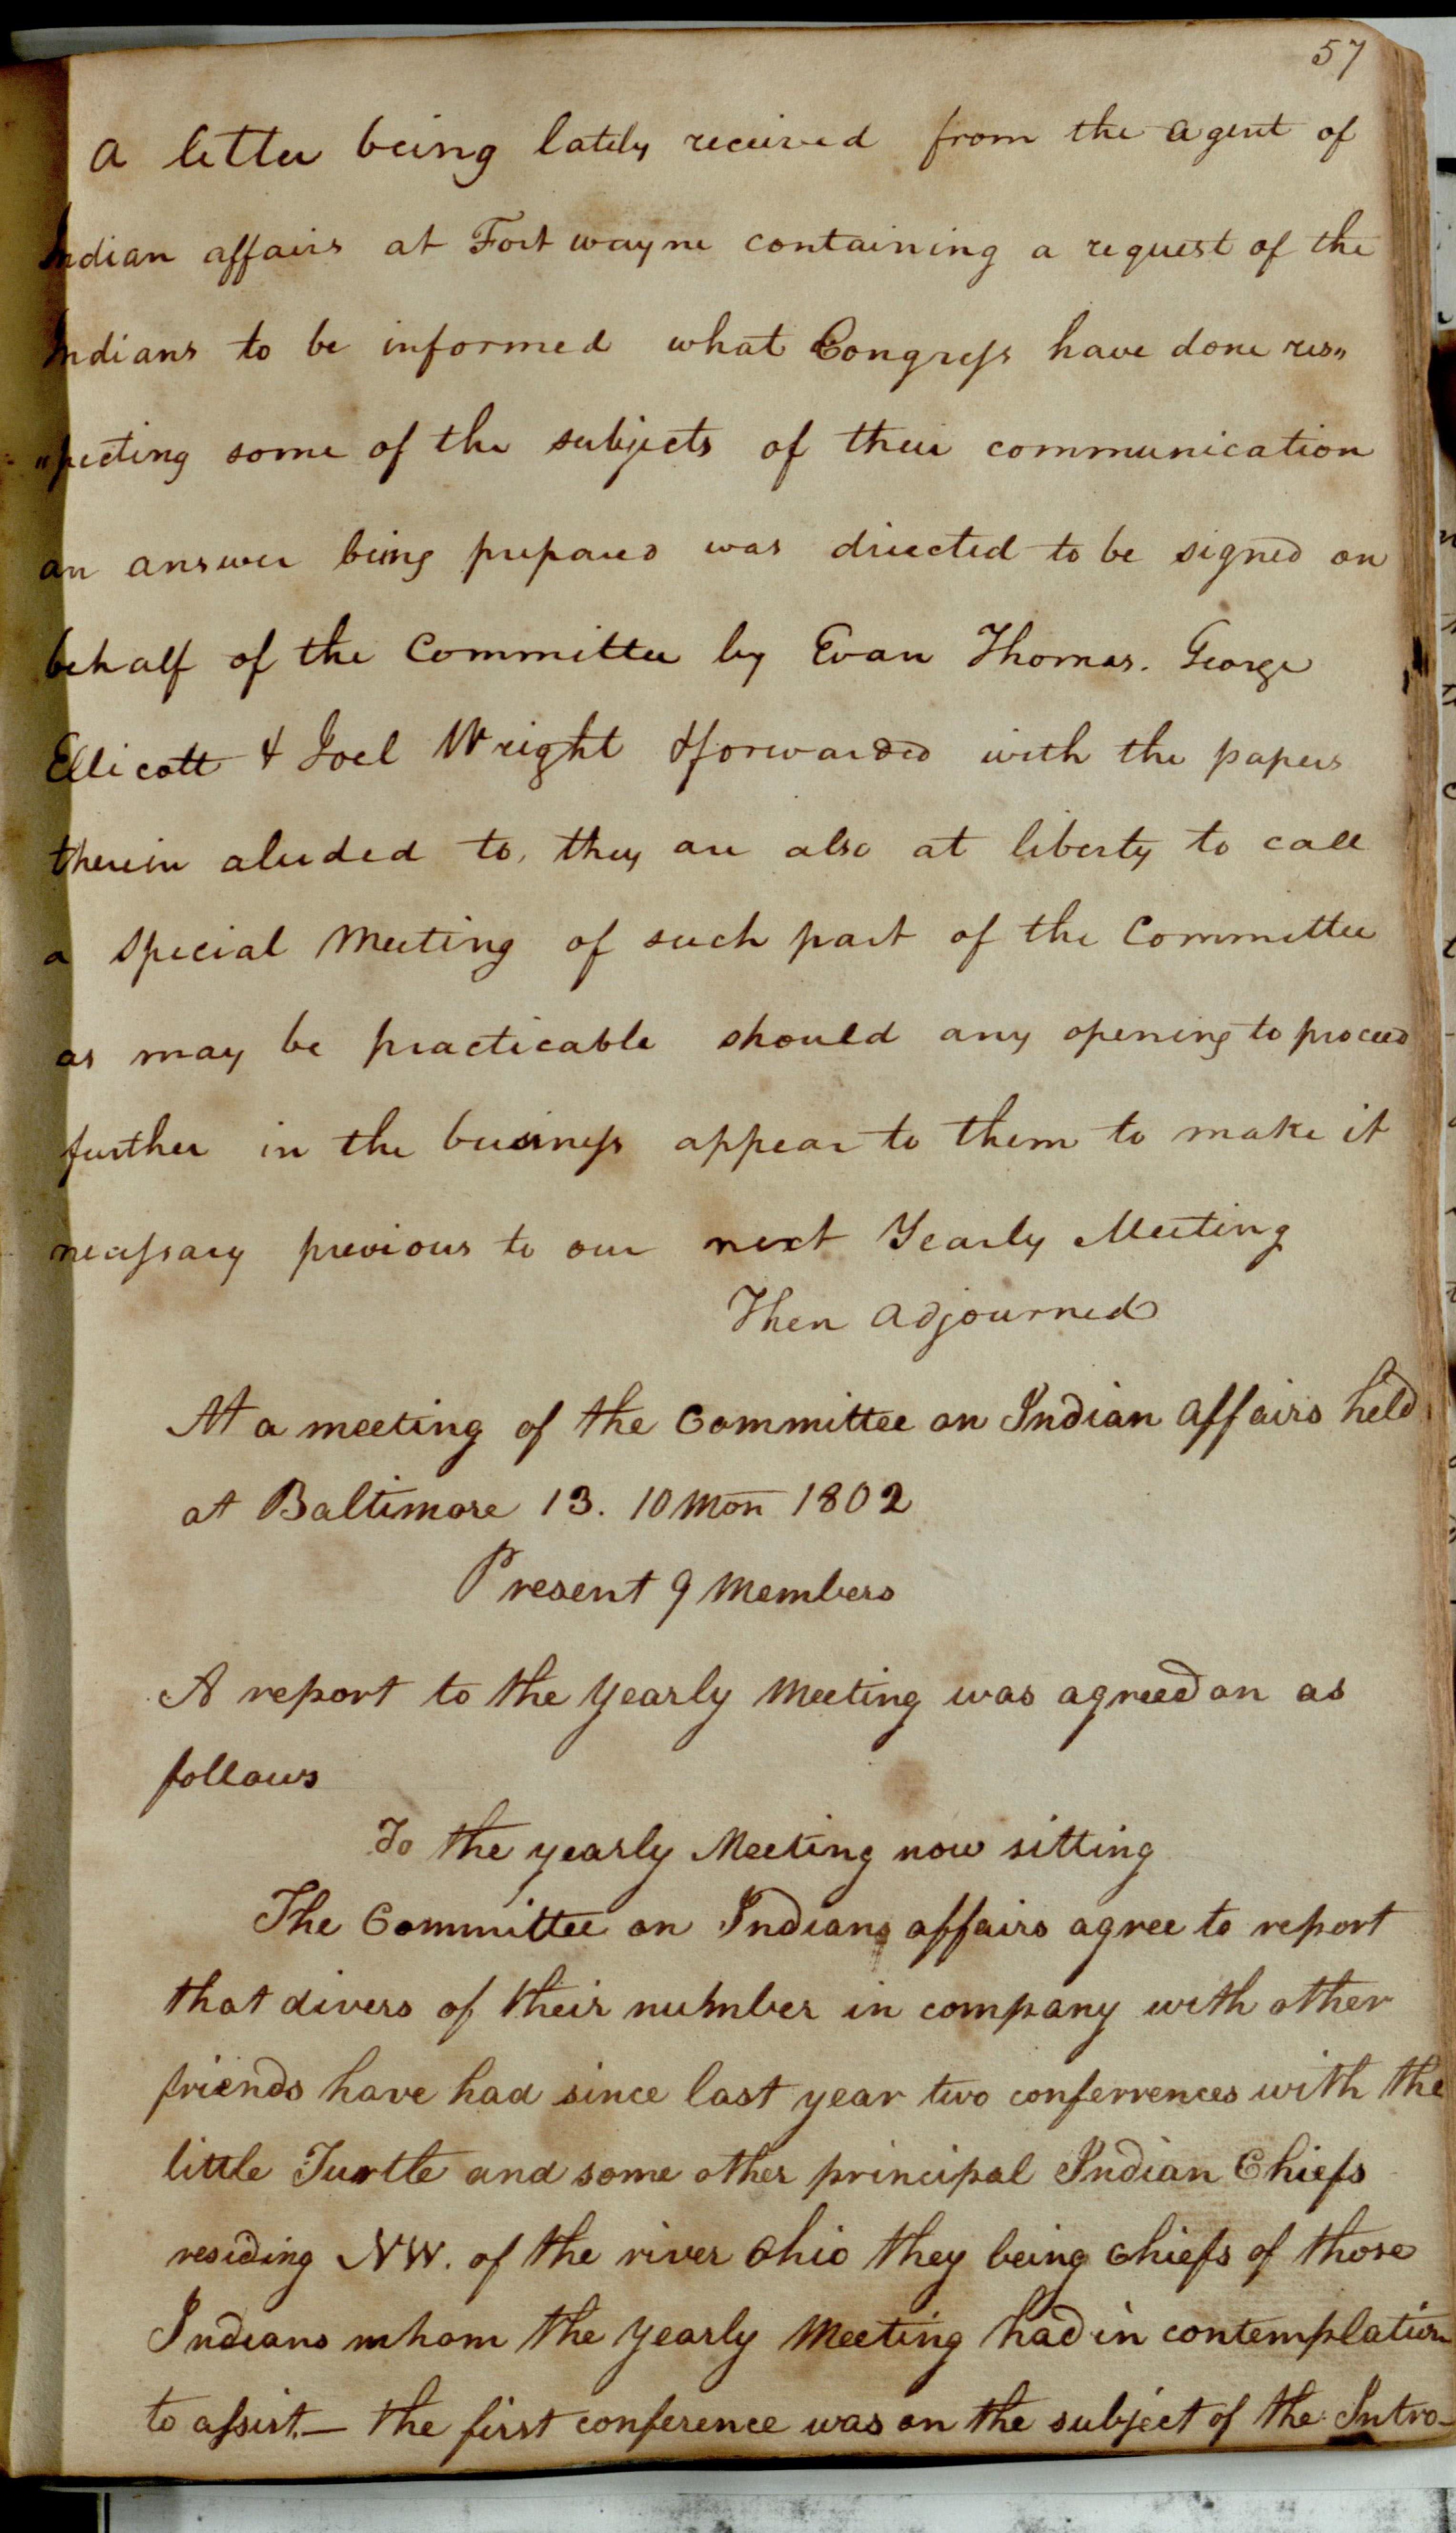 57
A letter being lately received from the Agent of
Indian affairs at Fort wayne containing a request of the
Indians to be informed what Congress have done res„
„pecting some of the subjects of their communication
an answer being prepared was directed to be signed on
behalf of the Committee by Evan Thomas. George
Ellicott & Joel Wright & forwarded with the papers
therein aluded to, they are also at liberty to call
a special Meeting of such part of the Committee
as may be practicable should any opening to proceed
further in the business appear to them to make it
necessary previous to our next Yearly Meeting
Then adjourned
At a meeting of the Committee on Indian affairs held
at Baltimore 13. 10 Mon 1802
Present 9 Members
A report to the Yearly Meeting was agreed on as
follows
To the yearly Meeting now sitting
The Committee on Indians affairs agree to report
that divers of their number in company with other
friends have had since last year two conferrences with the
little Turtle and some other principal Indian Chiefs
residing NW. of the river Ohio they being chiefs of those
Indians whom the Yearly Meeting had in contemplation
to assist.— the first conference was on the subject of the Intro-